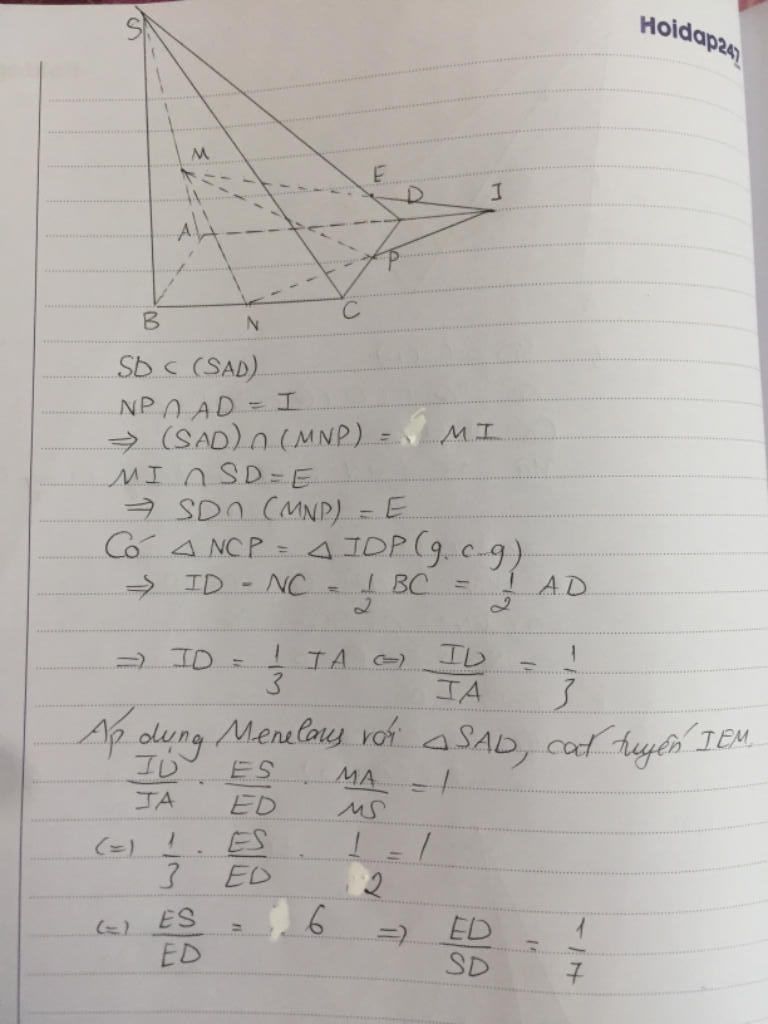 Hoidap247
S
M
E
D
I
A
P
B
N
C
SD ⊂ (SAD)
NP ∩ AD = I
⇒ (SAD) ∩ (MNP) = MI
MI ∩ SD = E
⇒ SD ∩ (MNP) = E
Có △ NCP = △ IDP (g.c-g)
⇒ ID = NC = 1/2 BC = 1/2 AD
⇒ ID = 1/3 IA ⇔ ID/IA = 1/3
Áp dụng Menelaus với △SAD, cát tuyến IEM.
ID/IA . ES/ED . MA/MS = 1
(=) 1/3 . ES/ED . 1/2 = 1
(=) ES/ED = 6 ⇒ ED/SD = 1/7